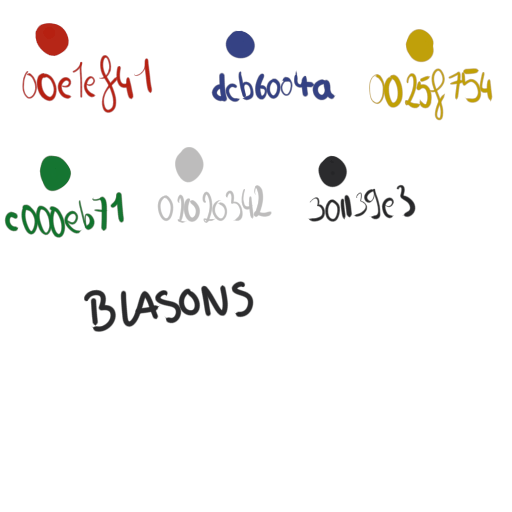 00e1ef41 dcb6004a 0025f754
c000eb71 02020342 301139e3
BLASONS